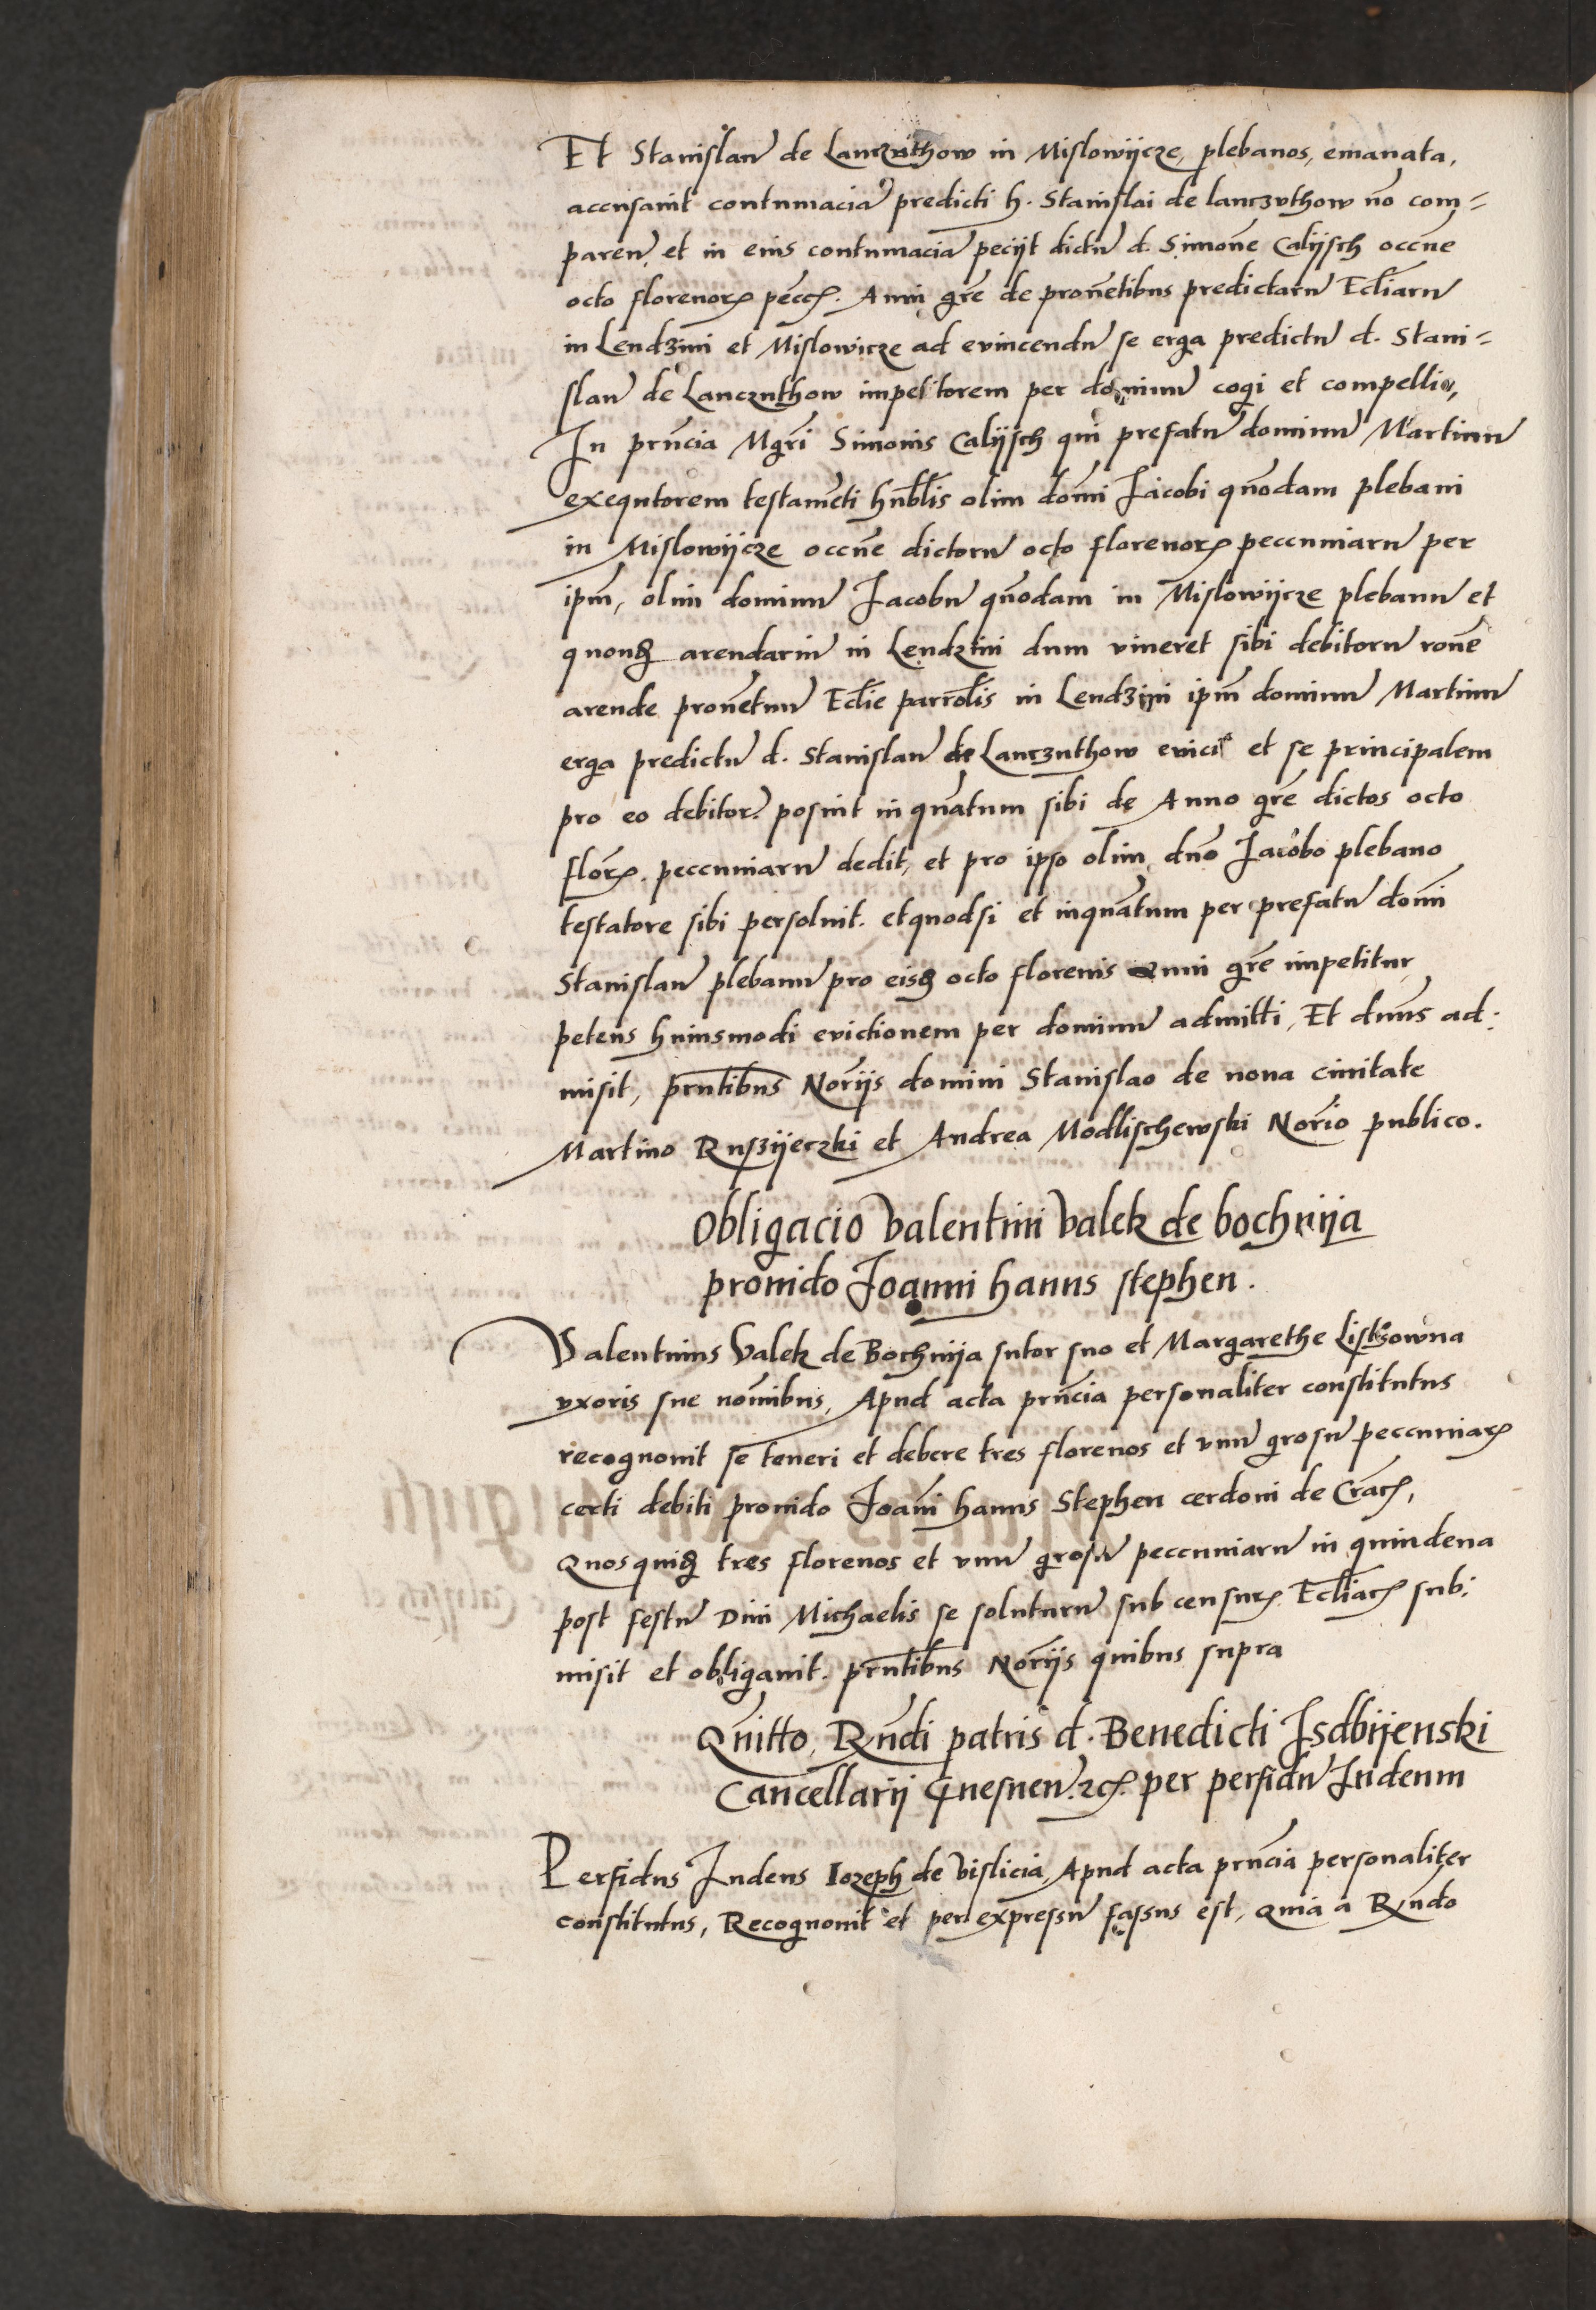 Et Stanislaū de Lanczuthow in Mislowijcze, plebanos, emanata,
accusavit contumaciā predicti h. Stanislai de lanczvthow nō com=
paren̄. et in eius contumaciā pecijt dictū d. Simonē Calijsch occne
octo florenorꝝ pecc̄ꝝ. Anni gr̄e de provētibus predictarū Eccl̄iarū
in Lendzini et Mislowicze ad evincendū se erga predictū d. Stani=
slaū de Lanczuthow impetitorem per dominū cogi et compelli,
In pr̄ncia Mgr̄i Simonis Calijsch qui prefatū dominū Martinū
exequtorem testamēti hn̄blis olim domī Jacobi quōdam plebani
in Mislowijcze occne dictorū octo florenorꝝ peccuniarū per
ipm̄, olim dominū Jacobū quōdam in Mislowijcze plebanū et
quonꝫ arendariū in Lendzini dum viveret sibi debitorū ronē
arende provētuū Ecl̄ie parrol̄is in Lendzini ipm̄ dominū Martinū
erga predictū d. Stanislaū de Lanczuthow evicit et se principalem
pro eo debitor̄. posuit in quātum sibi de Anno gr̄e dictos octo
flor̄ꝝ. peccuniarū dedit, et pro ipso olim dn̄o Jacobo plebano
testatore sibi persolvit. etquodsi et inquātum per prefatū domī
Stanislaū plebanū pro eisꝫ octo florenis Anni gr̄e impetitur
petens huiusmodi evictionem per dominū admitti, Et dn̄us ad:
misit, prn̄tibus Nor̄ijs domini Stanislao de nova civitate
Martino Ruszijeczki et Andrea Modlischewski Nor̄io publico.
Obligacio Valentini Valek de bochnija
provido Joanni hanus stephen.
Valentinus Valek de Bochnija sutor suo et Margarethe Listhowna
vxoris sue nomībus, Apud acta prn̄cia personaliter constitutus
recognovit se teneri et debere tres florenos et vnū grosū peccuniarꝝ
certi debiti provido Joāni hanus Stephen cerdoni de Crac̄ꝝ,
Quosquiꝫ tres florenos et vnū grosū peccuniarū in quindena
post festū Divi Michaelis se soluturū sub censurꝝ Ecl̄iarꝝ sub:
misit et obligavit. prn̄tibus Nor̄ijs quibus supra
Quitto, Rn̄di patris d. Benedicti Isdbijenski
Cancellarij Gnesnen̄. ꝛcꝝ. per perfidū Iudeum
Perfidus Iudeus Iozeph de Vislicia, Apud acta prn̄cia personaliter
constitutus, Recognovit et per expressū fassus est, Quia a Rn̄do